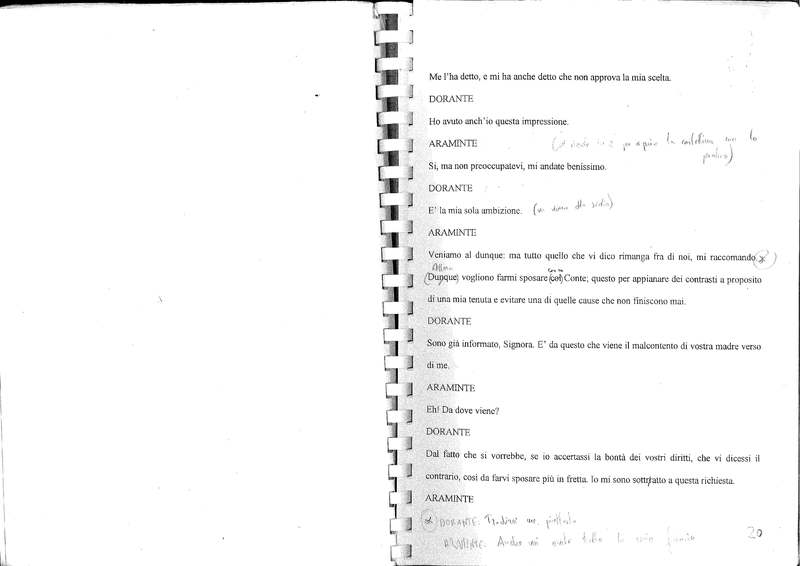 Me l'ha detto, e mi ha anche detto che non approva la mia scelta.
DORANTE
Ho avuto anch'io questa impressione.
ARAMINTE
la cartellina con le
Si, ma non preoccupatevi, mi andate benissimo.
DORANTE
E' la mia sola ambizione.
ARAMINTE
Veniamo al dunque: ma tutto quello che vi dico rimanga fra di noi, mi raccomando.
(Dunque) vogliono farmi sposare (col) Conte; questo per appianare dei contrasti a proposito
di una mia tenuta e evitare una di quelle cause che non finiscono mai.
DORANTE
Sono già informato, Signora. E' da questo che viene il malcontento di vostra madre verso
di me.
ARAMINTE
Eh! Da dove viene?
DORANTE
Dal fatto che si vorrebbe, se io accertassi la bontà dei vostri diritti, che vi dicessi il
contrario, così da farvi sposare più in fretta. Io mi sono sottratto a questa richiesta.
ARAMINTE
DORANTE.
20